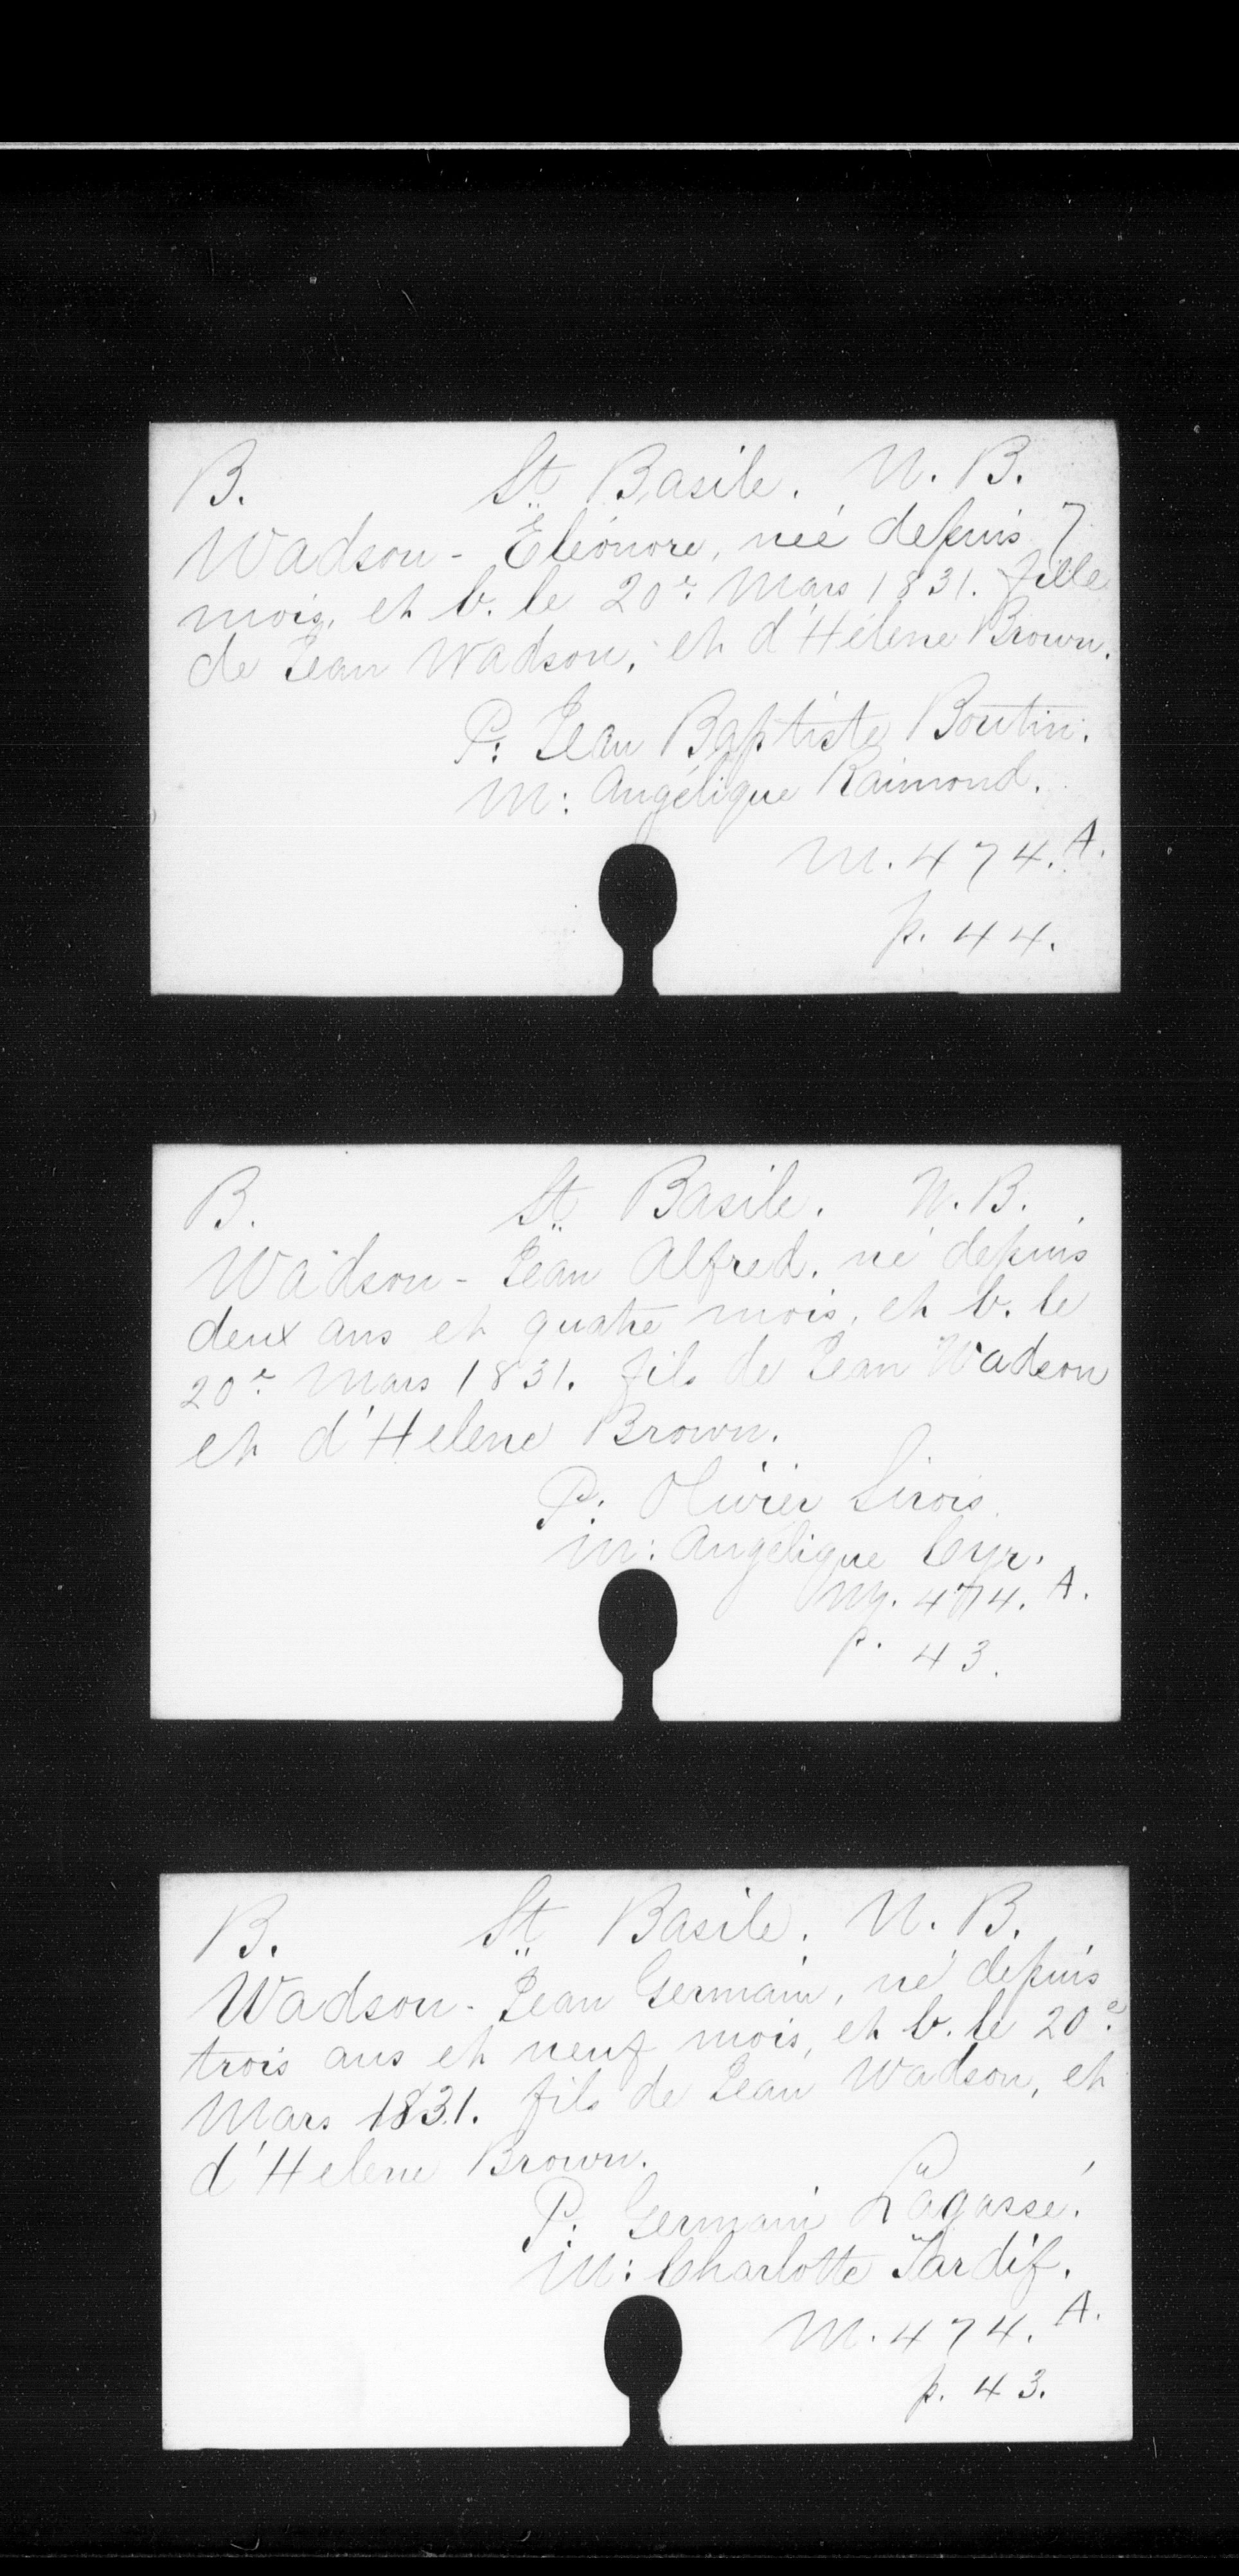 B. St Basile. N. B.
Wadson - Eléonore, neé depuis 7
mois, et b. le 20e Mars 1831. fille
de Jean Wadson, et d'Hélène Brown.
P: Jean Baptiste Boutin.
M: Angélique Raimond.
M. 474. A.
p. 44.
B. St Basile. N. B.
Wadson - Jean Alfred, né depuis
deux ans et quatre mois, et b. le
20e Mars 1831. fils de Jean Wadson
et d'Helene Brown.
P: Olivier Sirois
M: Angélique Cyr.
M. 474. A.
p. 43.
B. St Basile. N. B.
Wadson - Jean Germain, né depuis
trois ans et neuf mois, et b. le 20e
Mars 1831. fils de Jean Wadson, et
d'Helene Brown.
P: Germain Lagassé.
M: Charlotte Tardif.
M. 474. A.
p. 43.